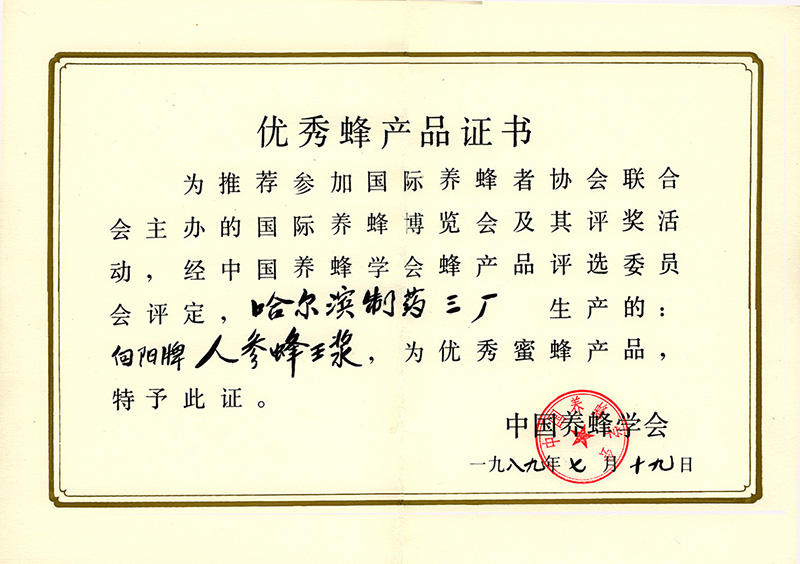 优秀蜂产品证书
为推荐参加国际养蜂者协会联合
会主办的国际养蜂博览会及其评奖活
动，经中国养蜂学会蜂产品评选委员
会评定，哈尔滨制药三厂 生产的：
向阳牌人参蜂王浆，为优秀蜜蜂产品，
特予此证。
中国养蜂学会
中国养蜂学会
一九八九年七月十九日